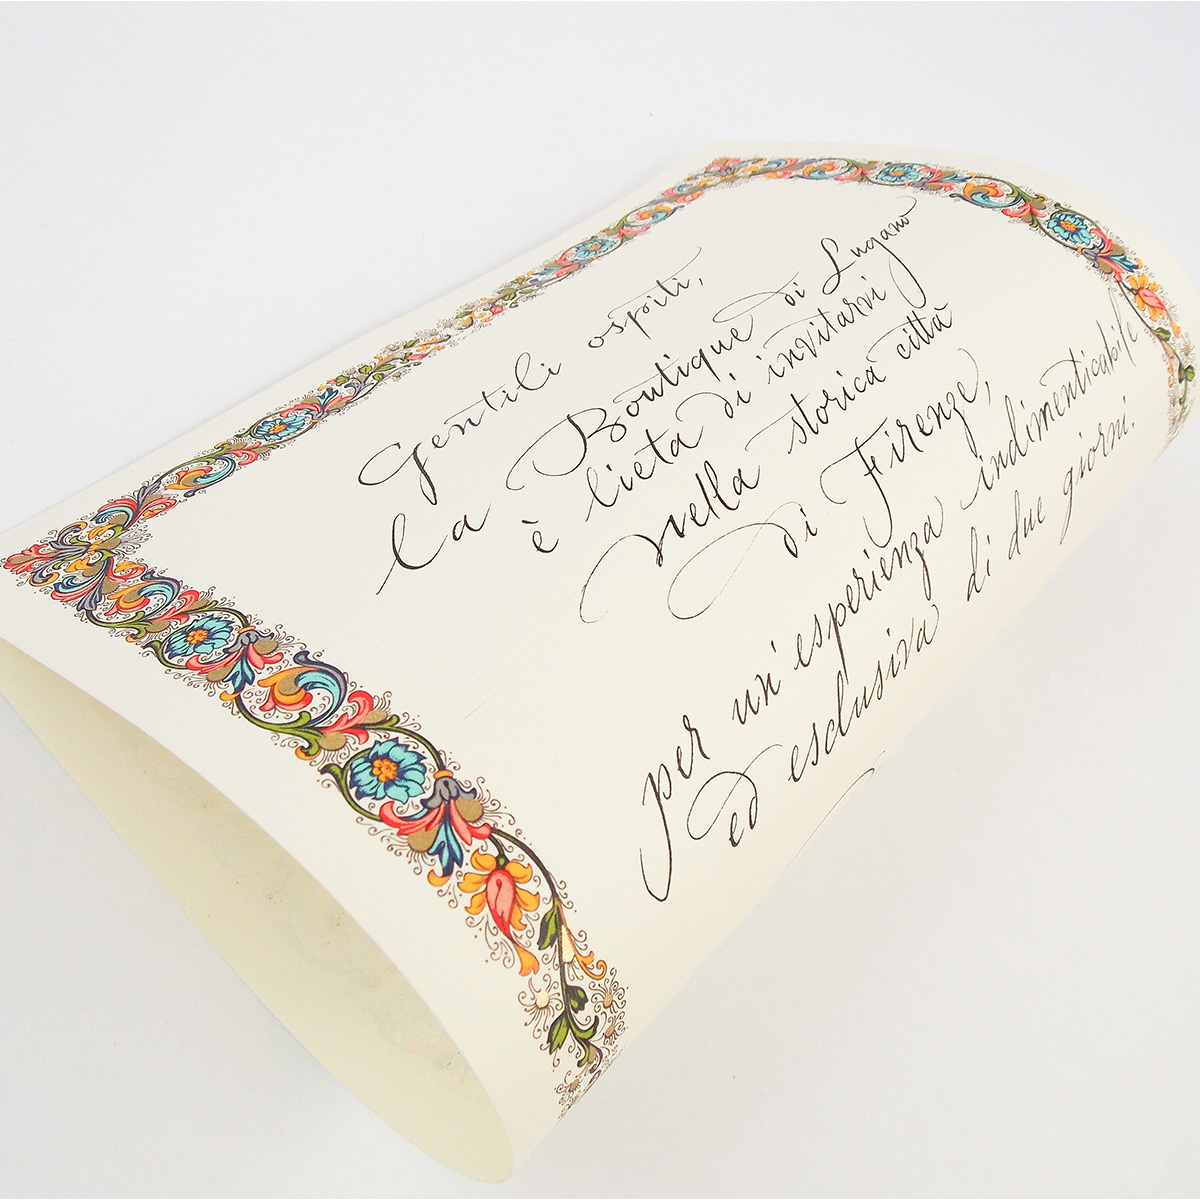 Gentili ospiti,
la Boutique di Lugano
è lieta di invitarvi
nella storica città
di Firenze,
per un'esperienza indimenticabile
ed esclusiva di due giorni.